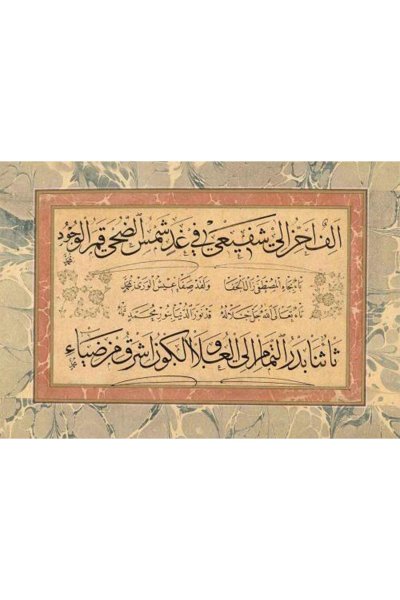 الف احرالى شفيعي في غد شمس الضحى قمر الوجود
تاء بجاه المصطفى نال ولقد صفا عيش الورى بمحمد
تاء تعالى الله جل جلاله قد نور الدنيا بنور محمد
ثا ثنا بدر التمام الى العلا والكون اشرق من ضياء